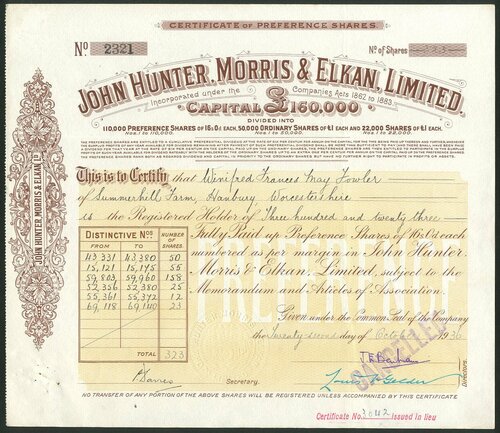 CERTIFICATE OF PREFERENCE SHARES.
No. 2321
No. of Shares 323
JOHN HUNTER, MORRIS & ELKAN, LIMITED.
Incorporated under the Companies Acts 1862 to 1883.
CAPITAL £160,000
DIVIDED INTO
110,000 PREFERENCE SHARES OF 16s/0d EACH, 50,000 ORDINARY SHARES OF £1 EACH AND 22,000 SHARES OF £1 EACH.
JOHN HUNTER, MORRIS & ELKAN, LD
This is to Certify that Winifred Frances May Fowler
of Summerhill Farm, Hanbury Worcestershire
is the Registered Holder of Three hundred and twenty three
Fully Paid up Preference Shares of 16s/0d each
numbered as per margin in John Hunter,
Morris & Elkan, Limited, subject to the
Memorandum and Articles of Association.
DISTINCTIVE Nos. NUMBER OF SHARES
FROM TO
43,331 43,380 50
15,121 15,145
59,803 59,960 158
52,356 52,380 25
55,361 55,372 12
69,118 69,140 23
TOTAL 323
Given under the Common Seal of the Company
the Twenty second day of October 1936
CANCELLED
Directors.
Secretary.
NO TRANSFER OF ANY PORTION OF THE ABOVE SHARES WILL BE REGISTERED UNLESS ACCOMPANIED BY THIS CERTIFICATE
Certificate No. 3042 issued in lieu